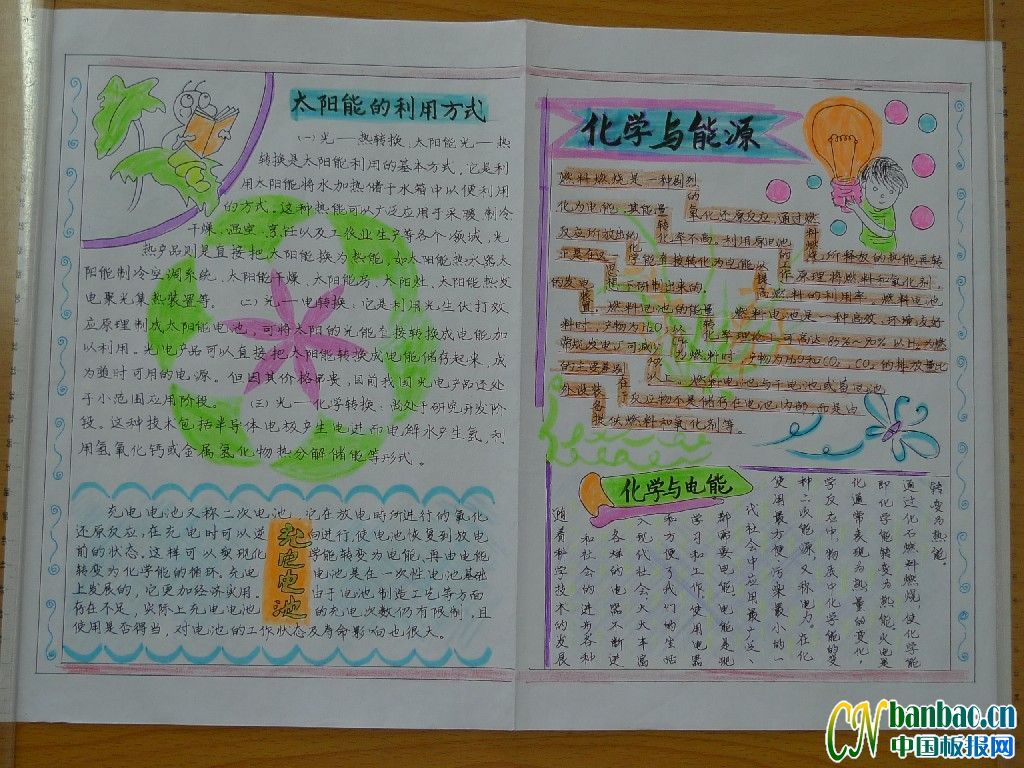 太阳能的利用方式
（一）光——热转换。太阳能光——热
转换是太阳能利用的基本方式。它是利
用太阳能将水加热储于水箱中以便利用
的方式。这种热能可以广泛应用于采暖、制冷
干燥、温室、烹饪以及工农业生产等各个领域，光
热产品则是直接把太阳能换为热能，如太阳能热水器太
阳能制冷空调系统、太阳能干燥、太阳能房、太阳灶、太阳能热发
电聚光集热装置等。（二）光——电转换：它是利用光生伏打效
应原理制成太阳能电池，可将太阳的光能直接转换成电能加
以利用。光电产品可以直接把太阳能转换成电能储存起来，成
为随时可用的电源。但因其价格昂贵，目前我国光电产品还处
于小范围应用阶段。（三）光—化学转换：尚处于研究开发阶
段。这种技术包括半导体电极产生电进而电解水产生氢，利
用氢氧化钙或金属氢化物热分解储能等形式。
充电电池
充电电池又称二次电池，它在放电时所进行的氧化
还原反应，在充电时可以逆向进行，使电池恢复到放电
前的状态。这样可以实现化学能转变为电能，再由电能
转变为化学能的循环。充电电池是在一次性电池基础
上发展的，它更加经济实用。由于电池制造工艺等方面
存在不足，实际上充电电池的充电次数仍有限制，且
使用是否得当，对电池的工作状态及寿命影响也很大。
化学与能源
燃料燃烧是一种剧烈
的氧化还原反应，通过燃
料燃烧所释放的热能再转
化为电能，其能量
转化率不高。利用原电池
的工作原理将燃料和氧化剂
反应所放出的
化学能直接转化为电能
正是在这
的发电装置。燃料电池的能量
燃料的利用率。燃料电池
燃料电池是一种高效、环境友好
料时，产物为H₂O，以
转化率理论上可高达85%~90%以上，为燃
为燃料时，产物为H₂O和CO₂，CO₂的排放量比
常规发电厂可减少
以上。燃料电池与干电池或蓄电池
的主要差别
在于反应物不是储存在电池内部，而是由
外设装备提供燃料和氧化剂等。
化学与电能
转变为热能。
通过化石燃料燃烧，使化学能
即化学能转变为热能，火电是
化通常表现为热量的变化，
学反应中，物质中化学能的变
种二次能源，又称电力。在化
使用最方便，污染最小的一
代社会中应用最广泛、
都需要电能，电能是现
学习和工作，使用电器
和方便了我们的生活
入现代社会，大大丰富
各样的电器不断进
和社会的进步，各种
随着科学技术的发展
CN banbao.cn
中国板报网